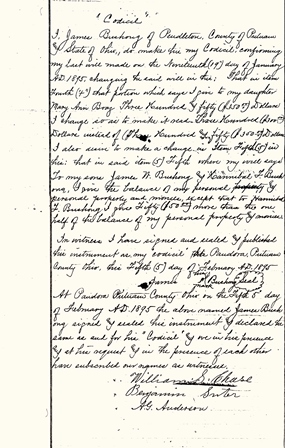 "Codicil"
I, James Bushong of Pendleton, County of Putnam
& State of Ohio, do make this my Codicil, confirming
my last will made on the Nineteenth (19) day of January
A.D. 1895, changing the said will in this: That in item
Fourth (4th) that portion which I give to my daughter
Mary Ann Three Hundred & fifty ($350.00) Dollars
I change so as to make it read Three Hundred ($300.00)
Dollars instead of Three Hundred & fifty ($350.00) Dollars
I also desire to make a change in Item Fifth (5) in
this: that in said item (5) Fifth where my will says
To my son James W. Bushong & F. Bush
ong, I give the balance of my personal property &
personal property and monies, except that to
F. Bushong I give Fifty ($50.00) more than his one
half of the balance of my personal property & monies
In witness I have signed and sealed & published
this instrument as my codicil at Pandora, Putnam
County Ohio, this Fifth (5) day of February A.D. 1895
James his mark Bushong seal
At Pandora Putnam County Ohio on the Fifth 5 day
of February A.D. 1895 the above named James Bush
ong signed & sealed this instrument & declared the
same as and for his "Codicil" & we in his presence
& at his request & in the presence of each other
have subscribed our names as witnesses.
William S. Chase
Benjamin Suter
A. G. Anderson